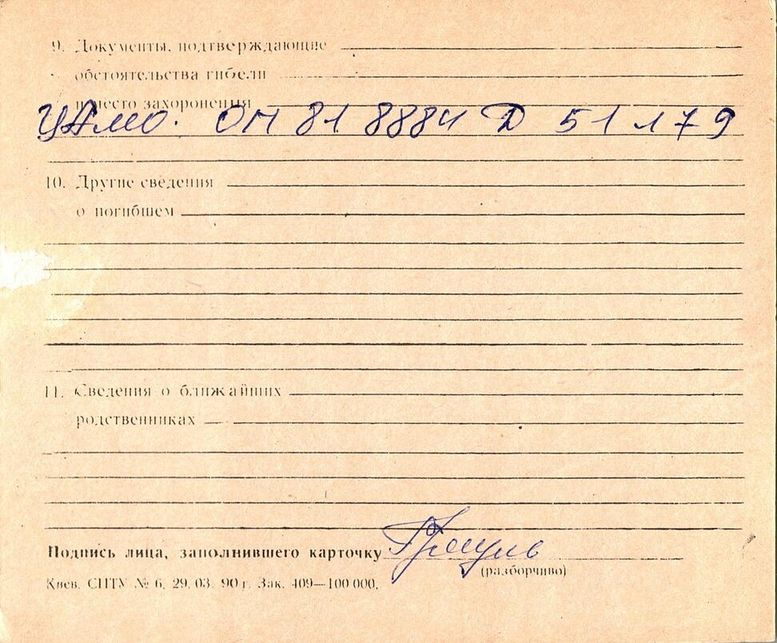 9. Документы, подтверждающие
обстоятельства гибели
и место захоронения
ЦАМО. ОП 81 8884 Д 51 179
10. Другие сведения
о погибшем
11. Сведения о ближайших
родственниках
Подпись лица, заполнившего карточку
(разборчиво)
Киев. СПТУ № 6. 29. 03. 90 г. Зак. 409—100 000.